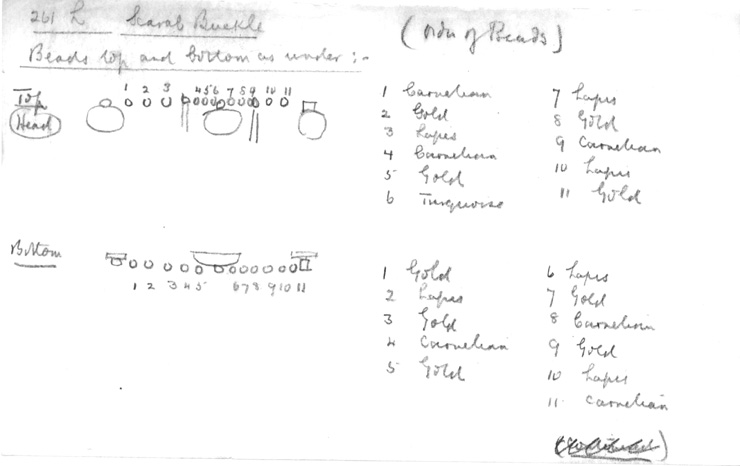 261 L Scarab Buckle
(Order of Beads)
Beads top and bottom as under :-
Top
Head
1 2 3 4 5 6 7 8 9 10 11
1 Carnelian
2 Gold
3 Lapis
4 Carnelian
5 Gold
6 Turquoise
7 Lapis
8 Gold
9 Carnelian
10 Lapis
11 Gold
Bottom
1 2 3 4 5 6 7 8 9 10 11
1 Gold
2 Lapis
3 Gold
4 Carnelian
5 Gold
6 Lapis
7 Gold
8 Carnelian
9 Gold
10 Lapis
11 Carnelian